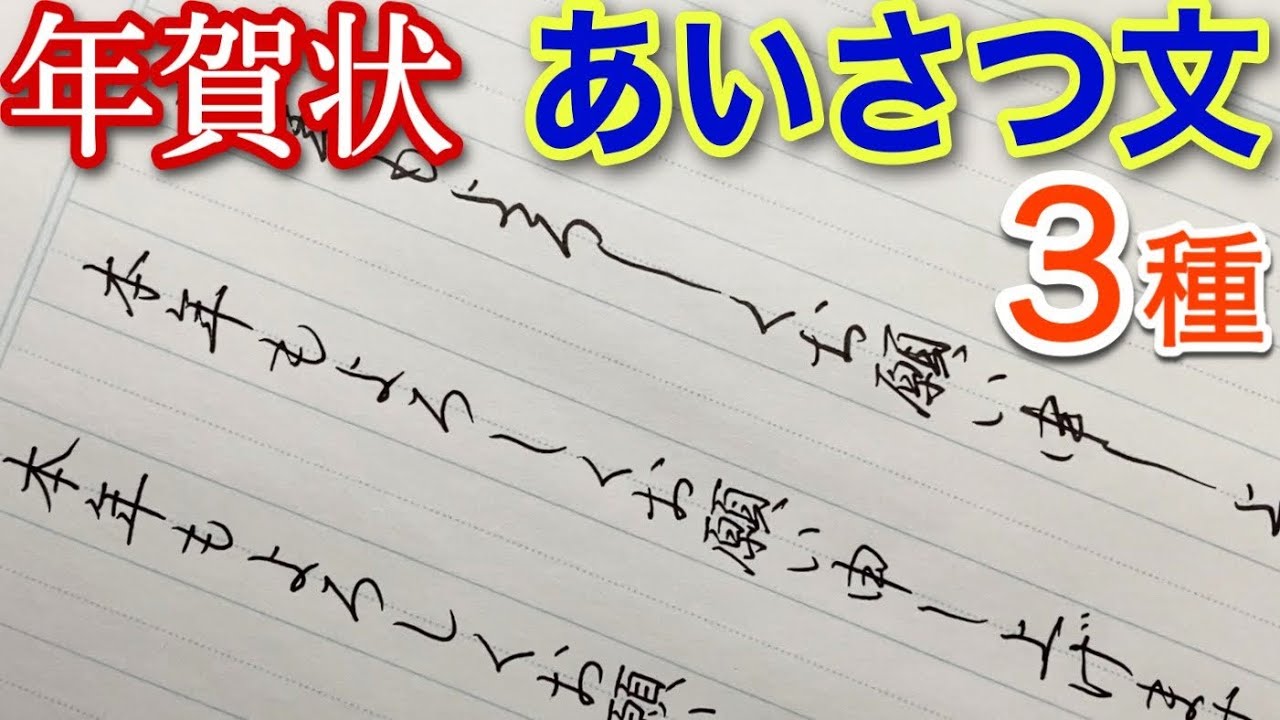 年賀状 あいさつ文
3種
もよろしくお願い申し上
本年もよろしくお願い申し上げます
本年もよろしくお願